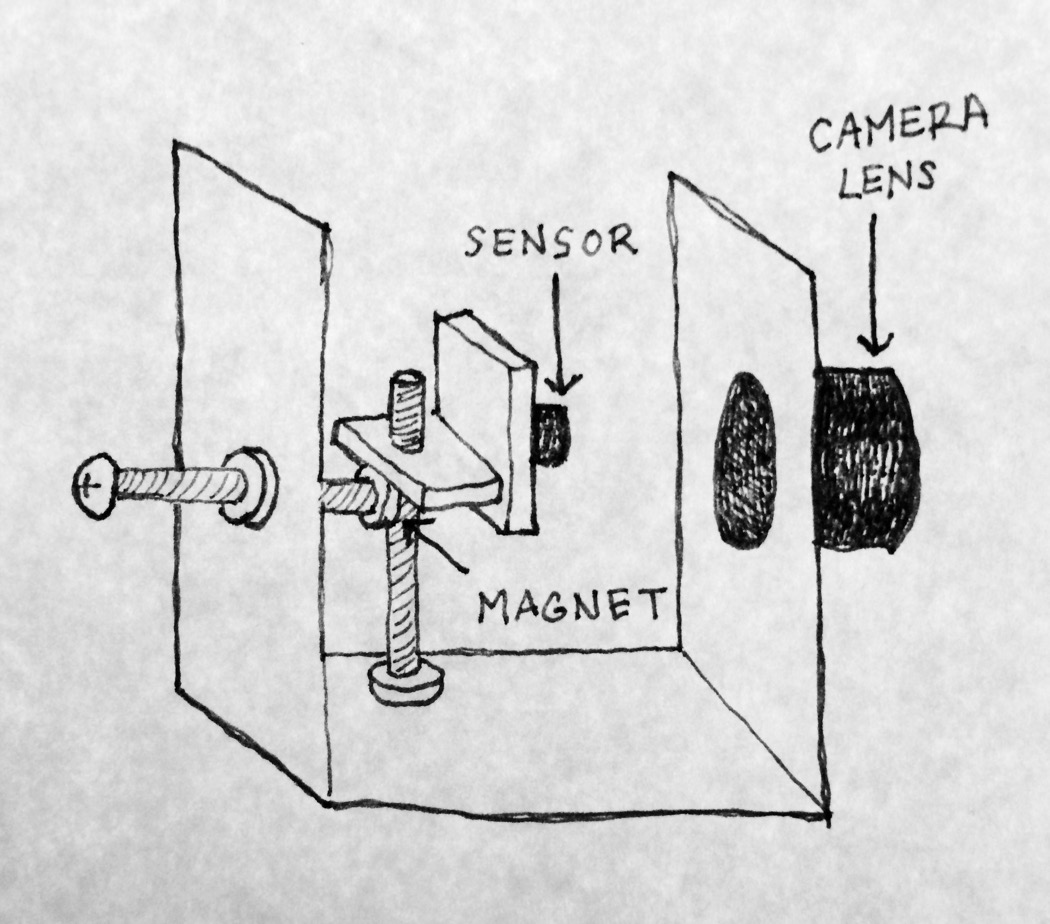 CAMERA
LENS
SENSOR
MAGNET